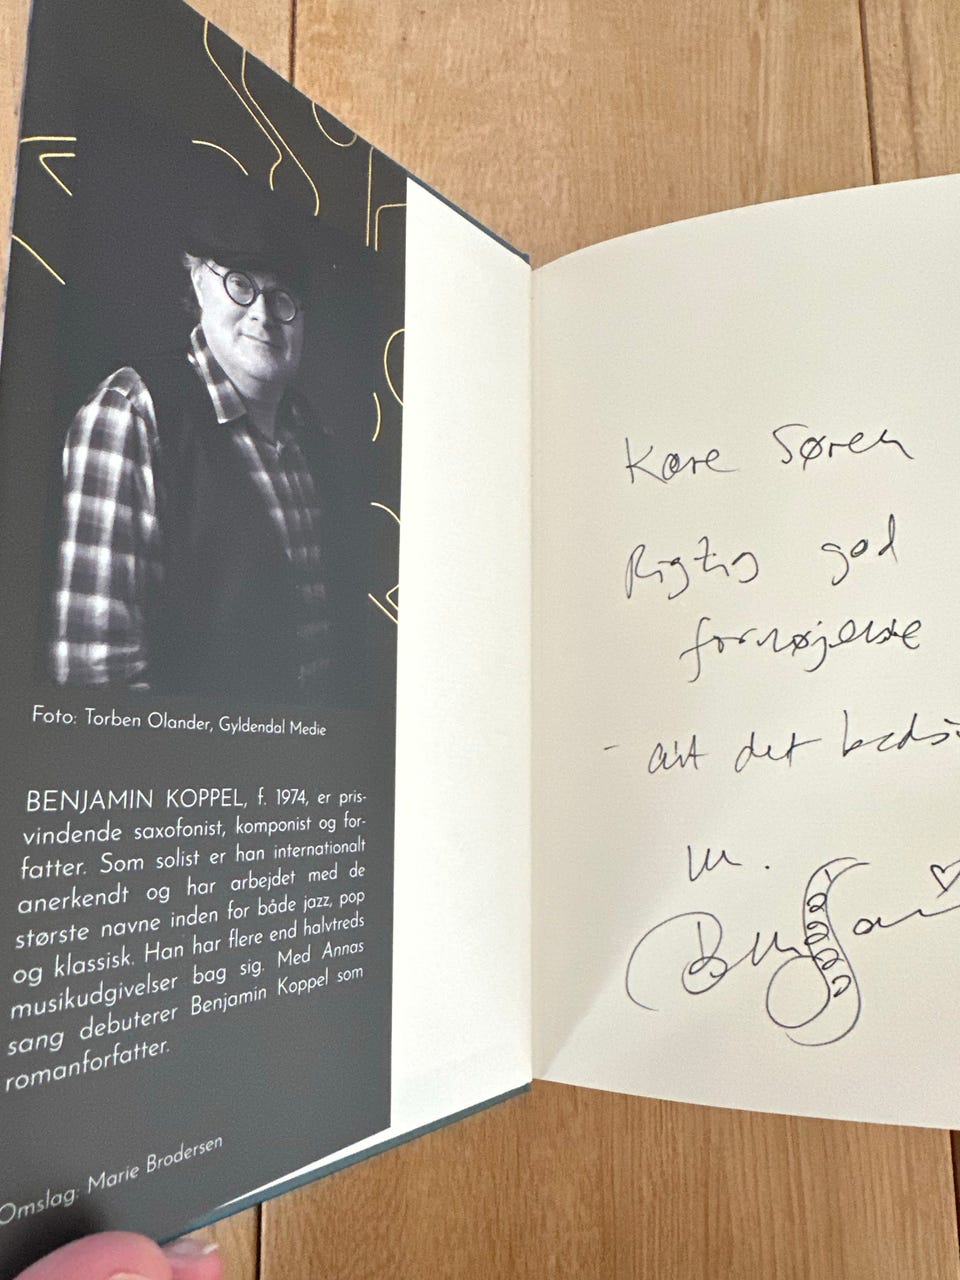 Foto: Torben Olander, Gyldendal Medie
BENJAMIN KOPPEL, f. 1974, er pris-
vindende saxofonist, komponist og for-
fatter. Som solist er han internationalt
anerkendt og har arbejdet med de
største navne inden for både jazz, pop
og klassisk. Han har flere end halvtreds
musikudgivelser bag sig. Med Annas
sang debuterer Benjamin Koppel som
romanforfatter.
Omslag: Marie Brodersen
Kære Søren
Rigtig god
fornøjelse
- alt det
Benjamin